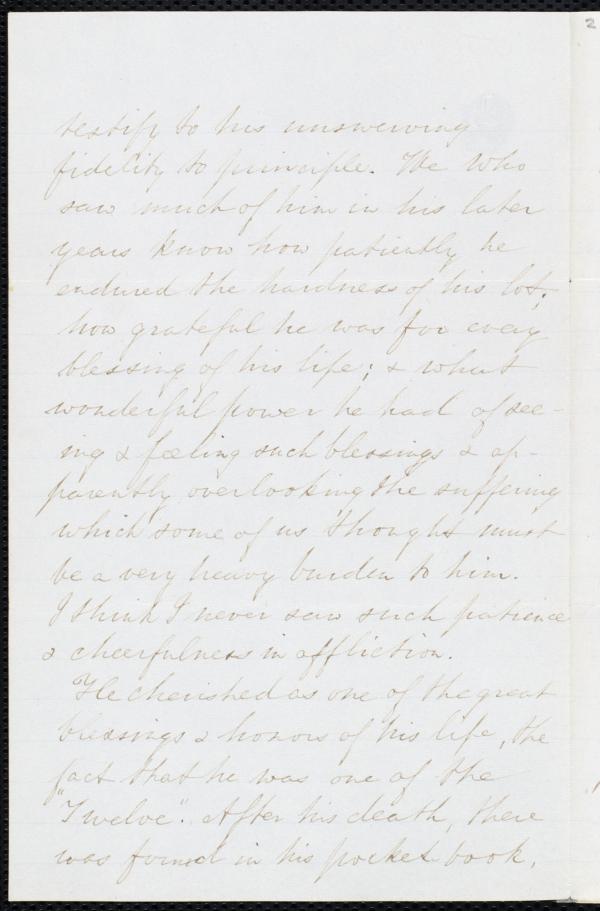 2
testify to his unswerving
fidelity to principle. We who
saw much of him in his later
years know how patiently he
endured the hardness of his lot;
how grateful he was for every
blessing of his life; & what
wonderful power he had of see-
ing & feeling such blessings & ap-
parently overlooking the suffering
which some of us thought must
be a very heavy burden to him.
I think I never saw such patience
& cheerfulness in affliction.
He cherished as one of the great
blessings & honors of his life, the
fact that he was one of the
"Twelve". After his death, there
was found in his pocket book,